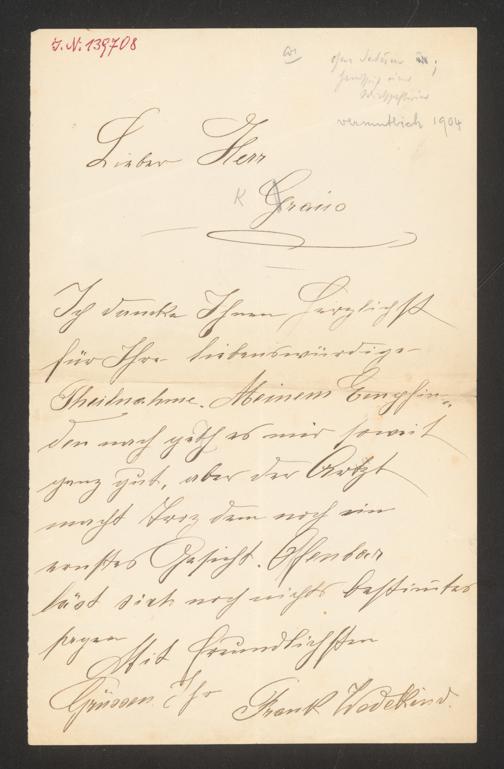 J. N. 139708
vermutlich 1904
Lieber Herr
K
Graus
Ich danke Ihnen herzlichst
für Ihre liebenswürdige
Theilnahme. Meinem Empfin„
den nach geth es mir soweit
ganz gut, aber der Artzt
macht troz dem noch ein
ernstes Gesicht. Offenbar
läst sich noch nichts bestimtes
sagen
Mit freundlichsten
Grüssen Ihr
Frank Wedekind.